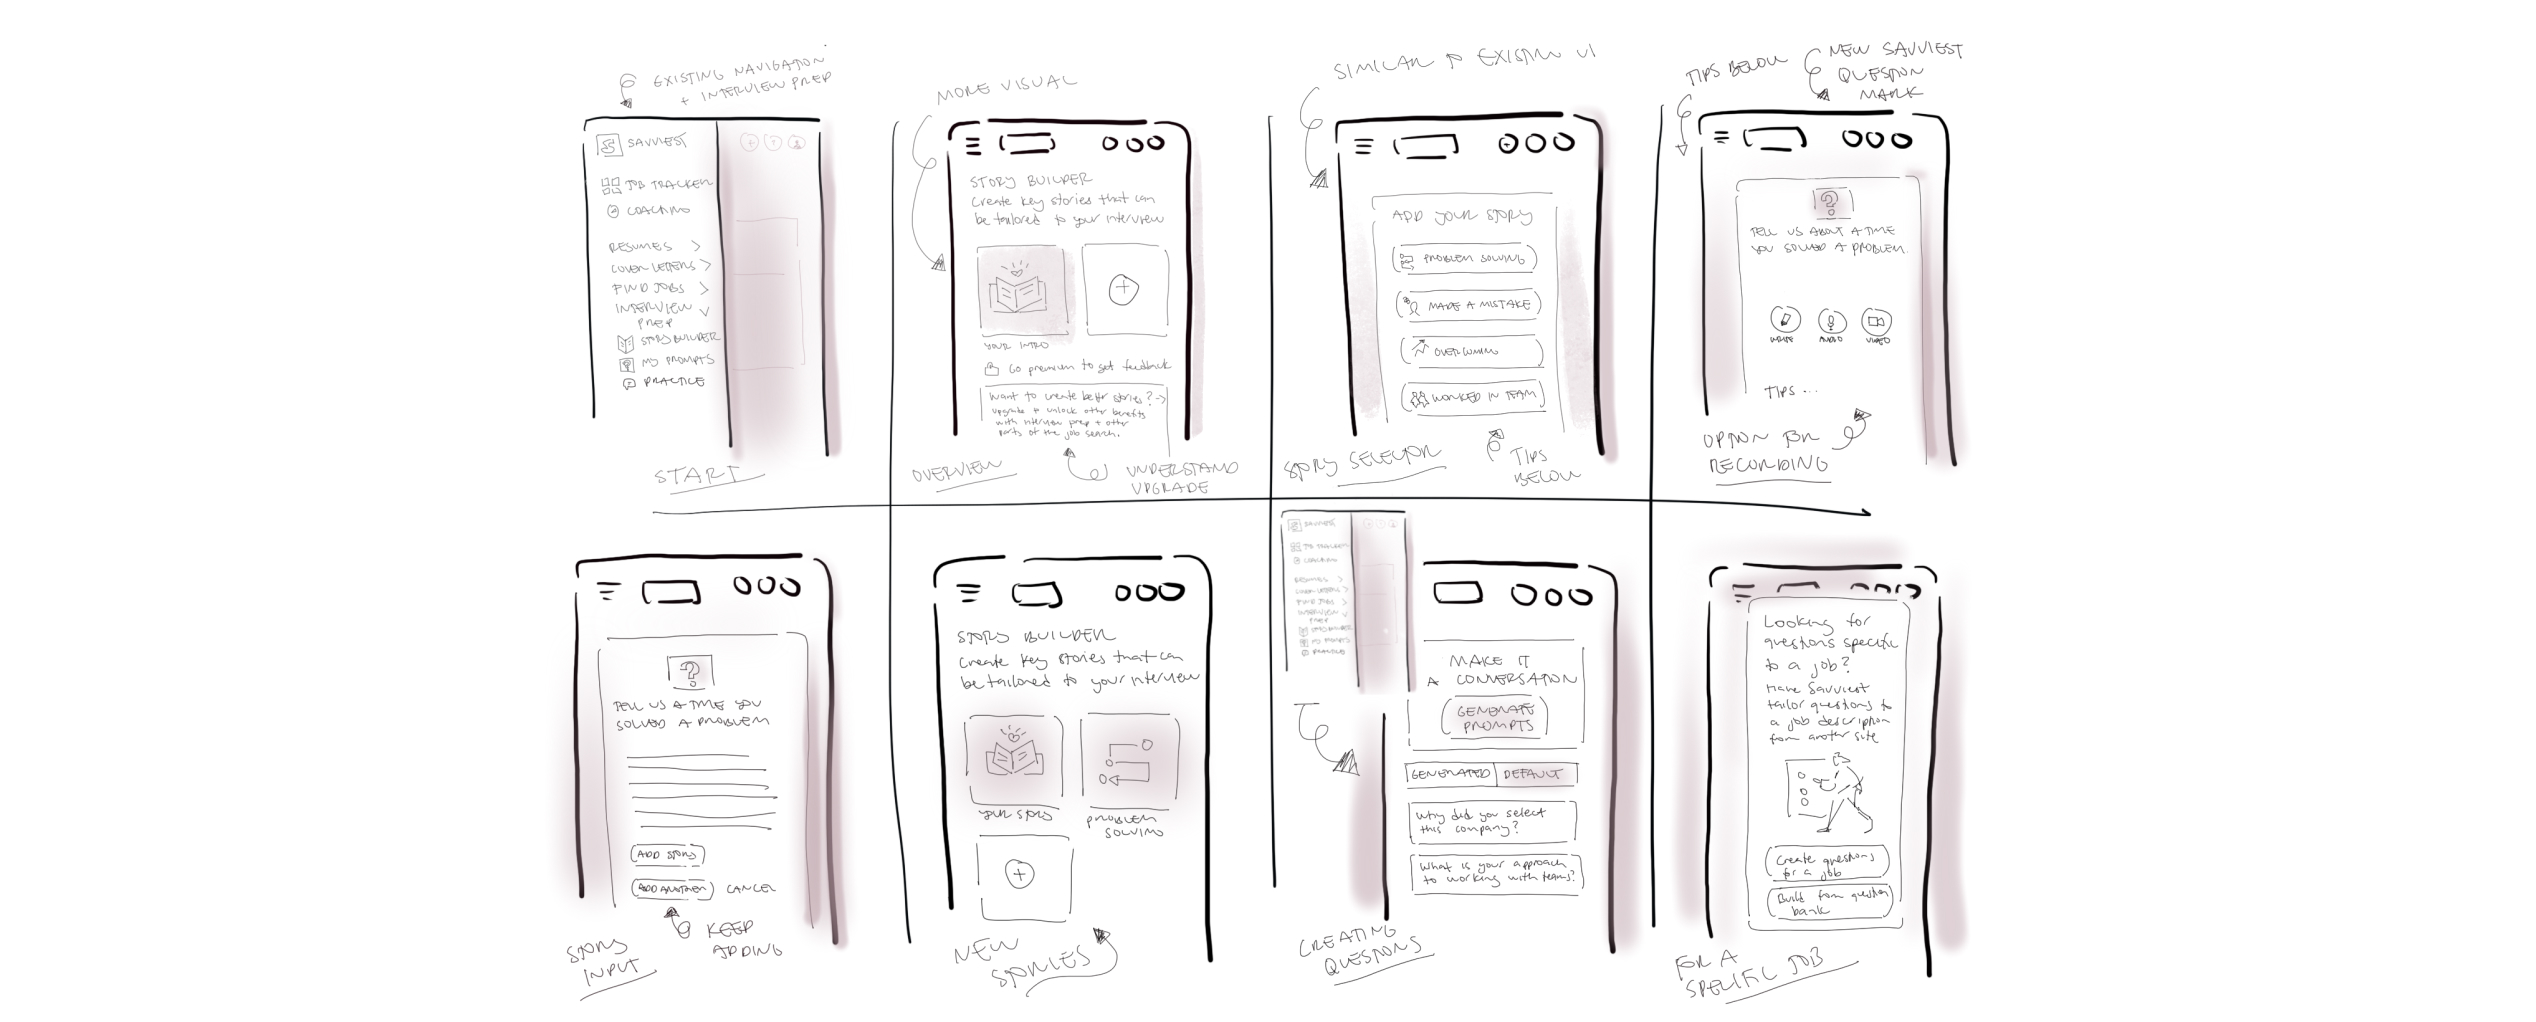 EXISTING NAVIGATION
+ INTERVIEW PREP
SAVVIEST
JOB TRACKER
COACHING
RESUMES
COVER LETTERS
FIND JOBS
INTERVIEW
PREP
STORY BUILDER
MY PROMPTS
PRACTICE
START
MORE VISUAL
STORY BUILDER
Create key stories that can
be tailored to your interview
YOUR INTRO
Go premium to get feedback
Want to create better stories? →
upgrade + unlock other benefits
with interview prep + other
parts of the job search.
OVERVIEW
UNDERSTAND
UPGRADE
SIMILAR TO EXISTING UI
ADD YOUR STORY
PROBLEM SOLVING
MADE A MISTAKE
OVERCOMING
WORKED IN TEAM
STORY SELECTOR
TIPS
BELOW
TIPS BELOW
NEW SAVVIEST
QUESTION
MARK
?
TELL US ABOUT A TIME
YOU SOLVED A PROBLEM.
WRITE
AUDIO
VIDEO
TIPS ...
OPTION FOR
RECORDING
?
TELL US A TIME YOU
SOLVED A PROBLEM
ADD STORY
ADD ANOTHER
CANCEL
STORY
INPUT
KEEP
ADDING
STORY BUILDER
Create key stories that can
be tailored to your interview
YOUR STORY
PROBLEM
SOLVING
NEW
STORIES
SAVVIEST
JOB TRACKER
COACHING
RESUMES
COVER LETTERS
FIND JOBS
INTERVIEW
PREP
STORY BUILDER
MY PROMPTS
PRACTICE
MAKE IT
A CONVERSATION
GENERATE
PROMPTS
GENERATED
DEFAULT
Why did you select
this company?
What is your approach
to working with teams?
CREATING
QUESTIONS
Looking for
questions specific
to a job?
Have Savviest
tailor questions to
a job description
from another site
Create questions
for a job
Build from question
bank
FOR A
SPECIFIC JOB